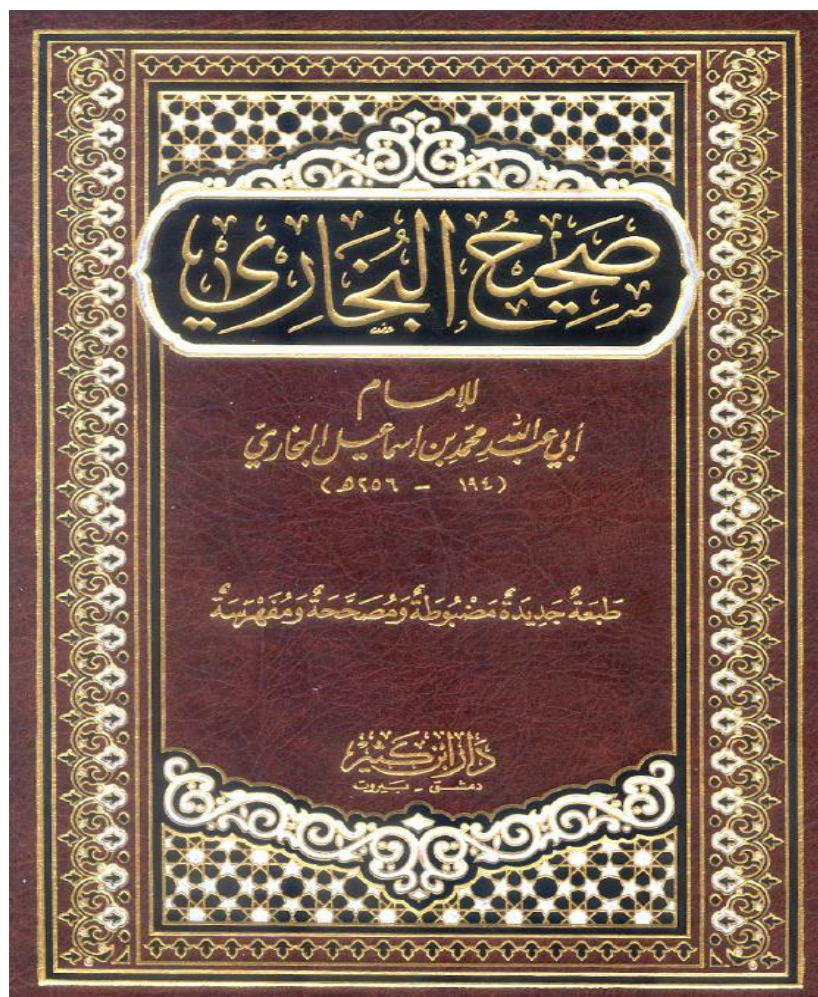 صَحِيحُ البُخَارِي
للإمام
أبي عبد الله محمد بن إسماعيل البخاريّ
(١٩٤ - ٢٥٦هـ)
طَبعَةٌ جَدِيدَةٌ مَضْبُوطَةٌ وَمُصَحَّحَةٌ وَمُفَهْرَسَةٌ
دَار ابْن كَثِير
دمشق - بيروت